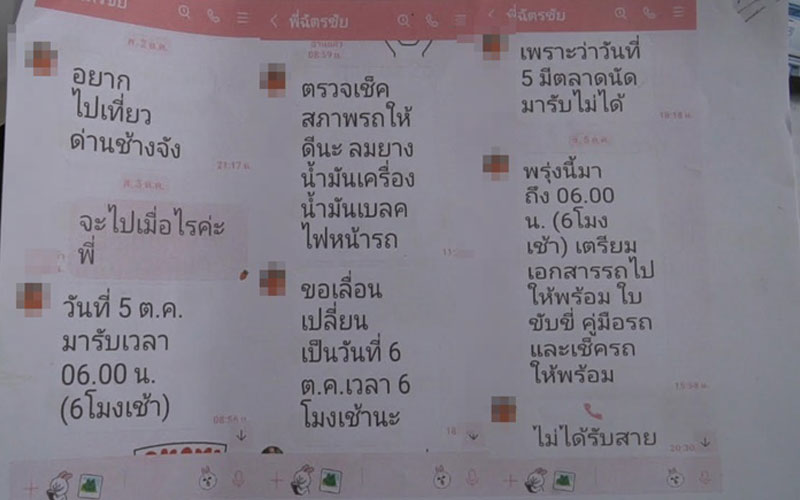 ศ. 2 ต.ค.
อยาก
ไปเที่ยว
ด่านช้างจัง
21:17 น.
ส. 3 ต.ค.
จะไปเมื่อไรค่ะ
พี่
วันที่ 5 ต.ค.
มารับเวลา
06.00 น.
(6โมงเช้า)
08:56 น.
พี่ฉัตรชัย
08:59 น.
ตรวจเช็ค
สภาพรถให้
ดีนะ ลมยาง
น้ำมันเครื่อง
น้ำมันเบลค
ไฟหน้ารถ
ขอเลื่อน
เปลี่ยน
เป็นวันที่ 6
ต.ค.เวลา 6
โมงเช้านะ
พี่ฉัตรชัย
เพราะว่าวันที่
5 มีตลาดนัด
มารับไม่ได้
จ. 5 ต.ค.
พรุ่งนี้มา
ถึง 06.00
น. (6โมง
เช้า) เตรียม
เอกสารรถไป
ให้พร้อม ใบ
ขับขี่ คู่มือรถ
และเช็ครถ
ให้พร้อม
15:54 น.
ไม่ได้รับสาย
20:30 น.